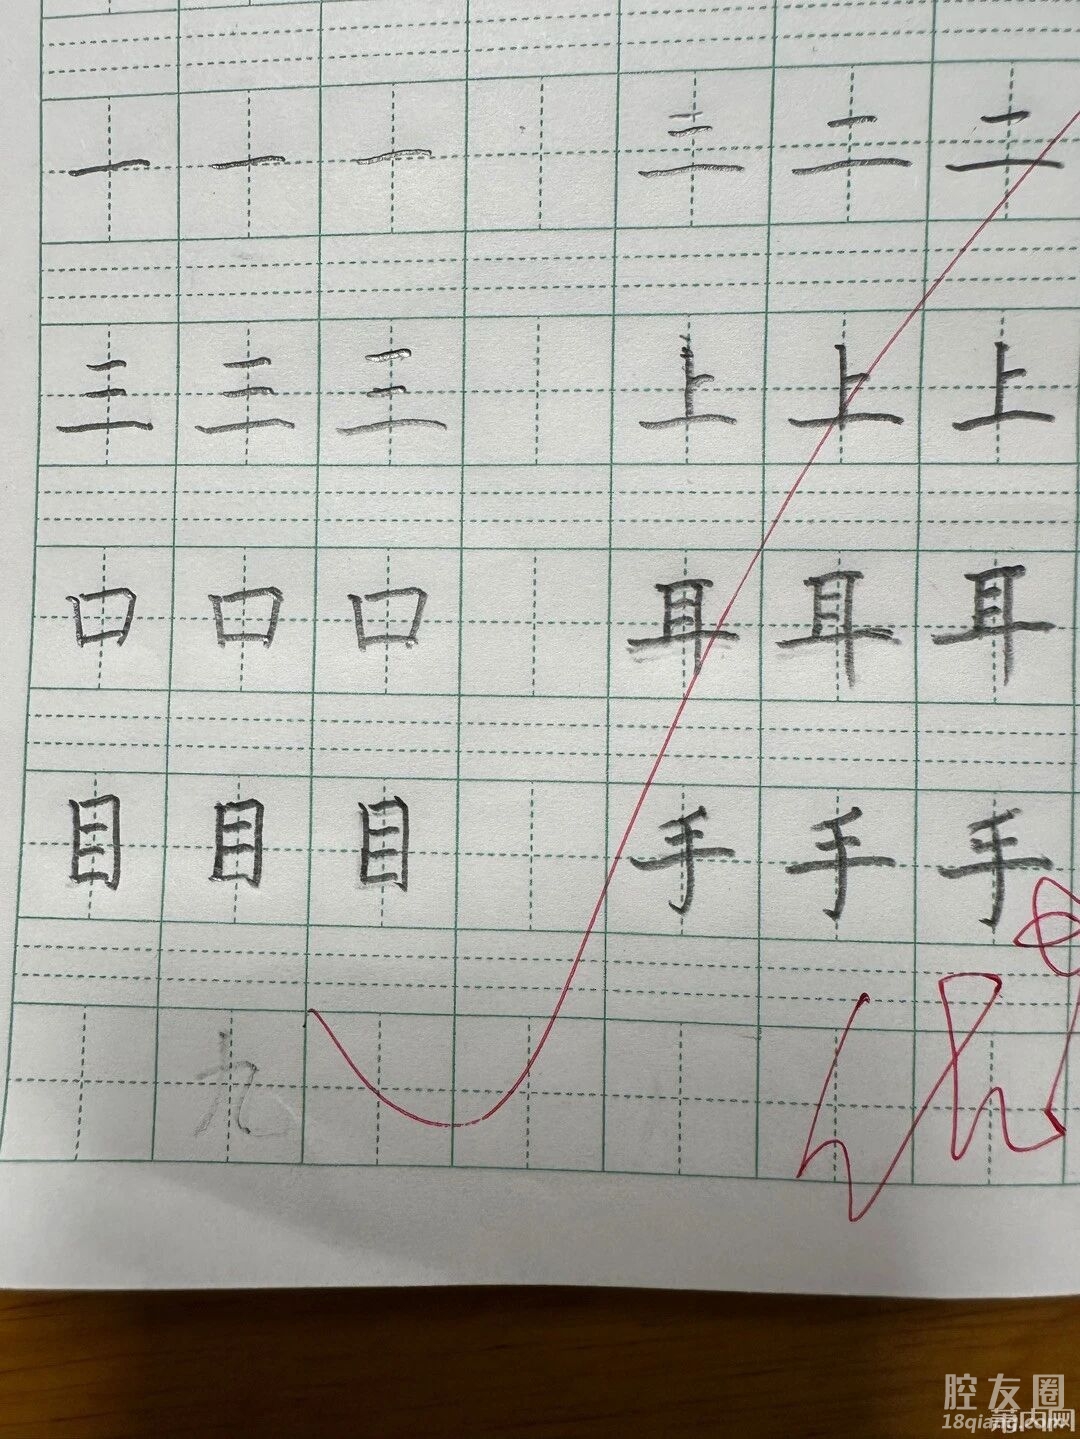 一 一 一 二 二 二
三 三 三 上 上 上
口 口 口 耳 耳 耳
目 目 目 手 手 手
九
腔友圈